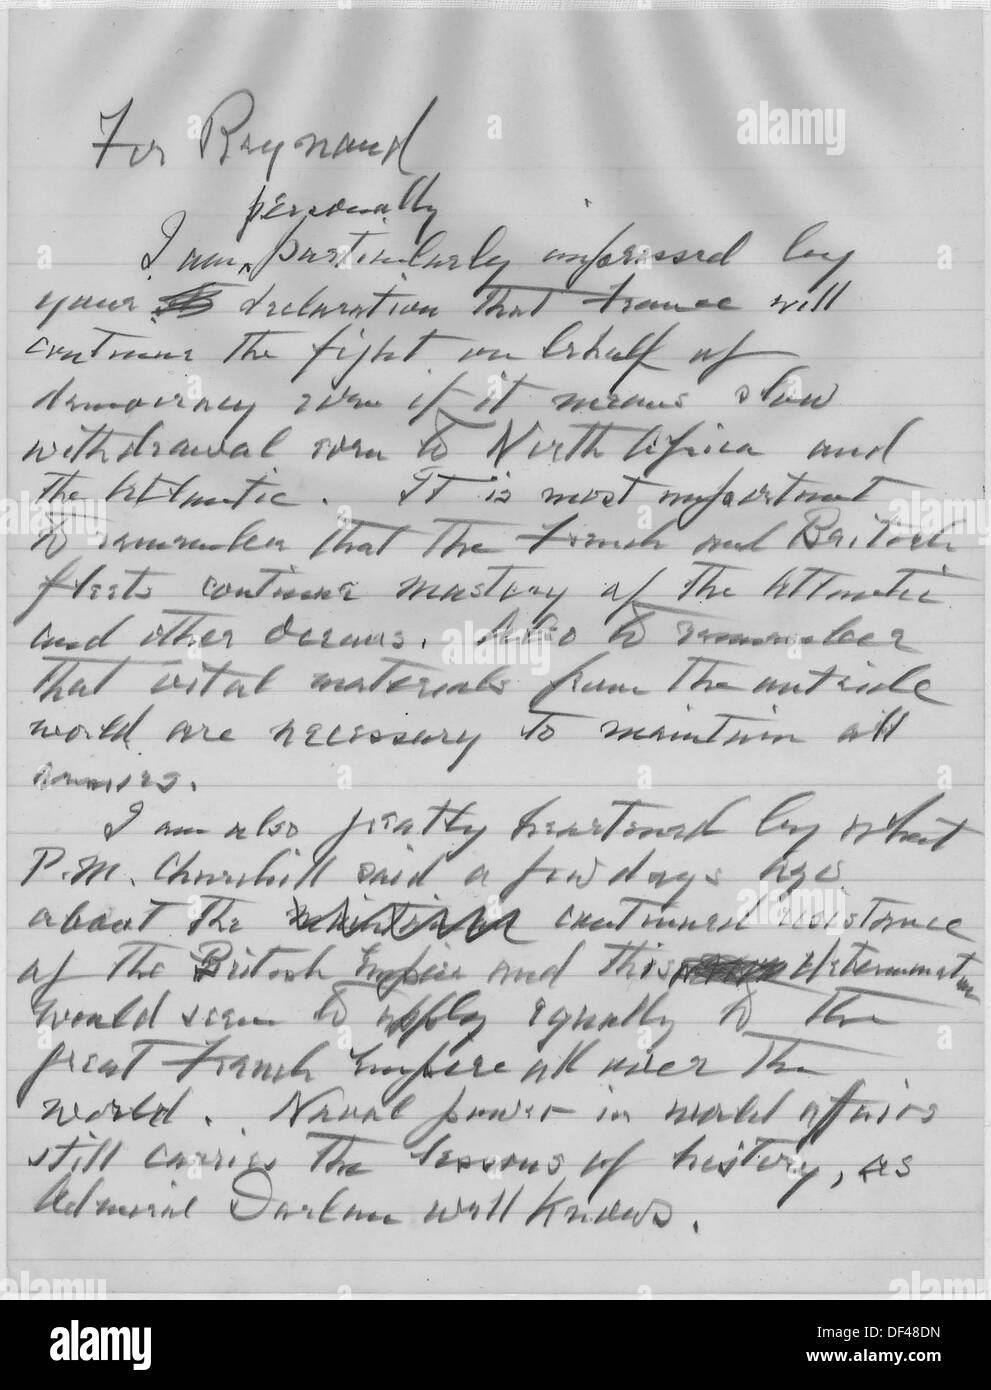 For Reynaud
personally
I am particularly impressed by
your declaration that France will
continue the fight on behalf of
democracy even if it means slow
withdrawal even to North Africa and
the Atlantic. It is most important
to remember that the French and British
fleets continue mastery of the Atlantic
and other oceans. Also to remember
that vital materials from the outside
world are necessary to maintain all
armies.
I am also greatly heartened by what
P.M. Churchill said a few days ago
about the continued resistance
of the British Empire and this determination
would seem to apply equally to the
great French Empire all over the
world. Naval power in world affairs
still carries the lessons of history, as
Admiral Darlan well knows.
alamy
a
alamy stock photo
Image ID: DF48DN
www.alamy.com